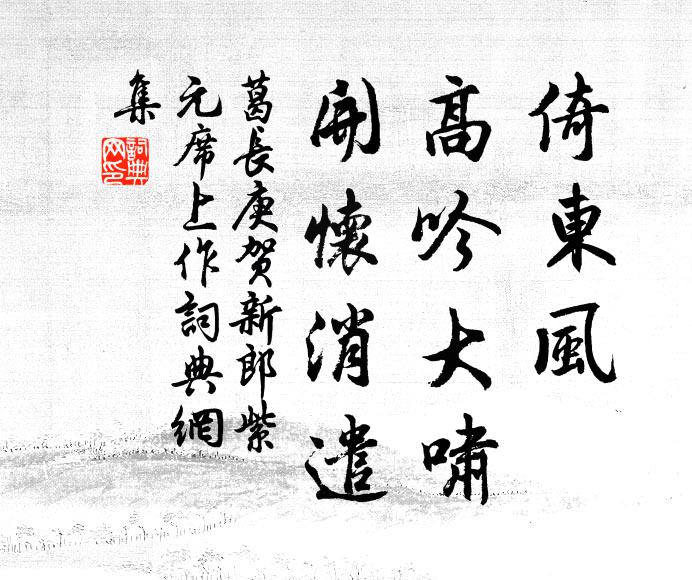 倚東風
高吟大嘯
開懷消遣
葛長庚賀新郎紫
元席上作詞典網
集
詞典
网印